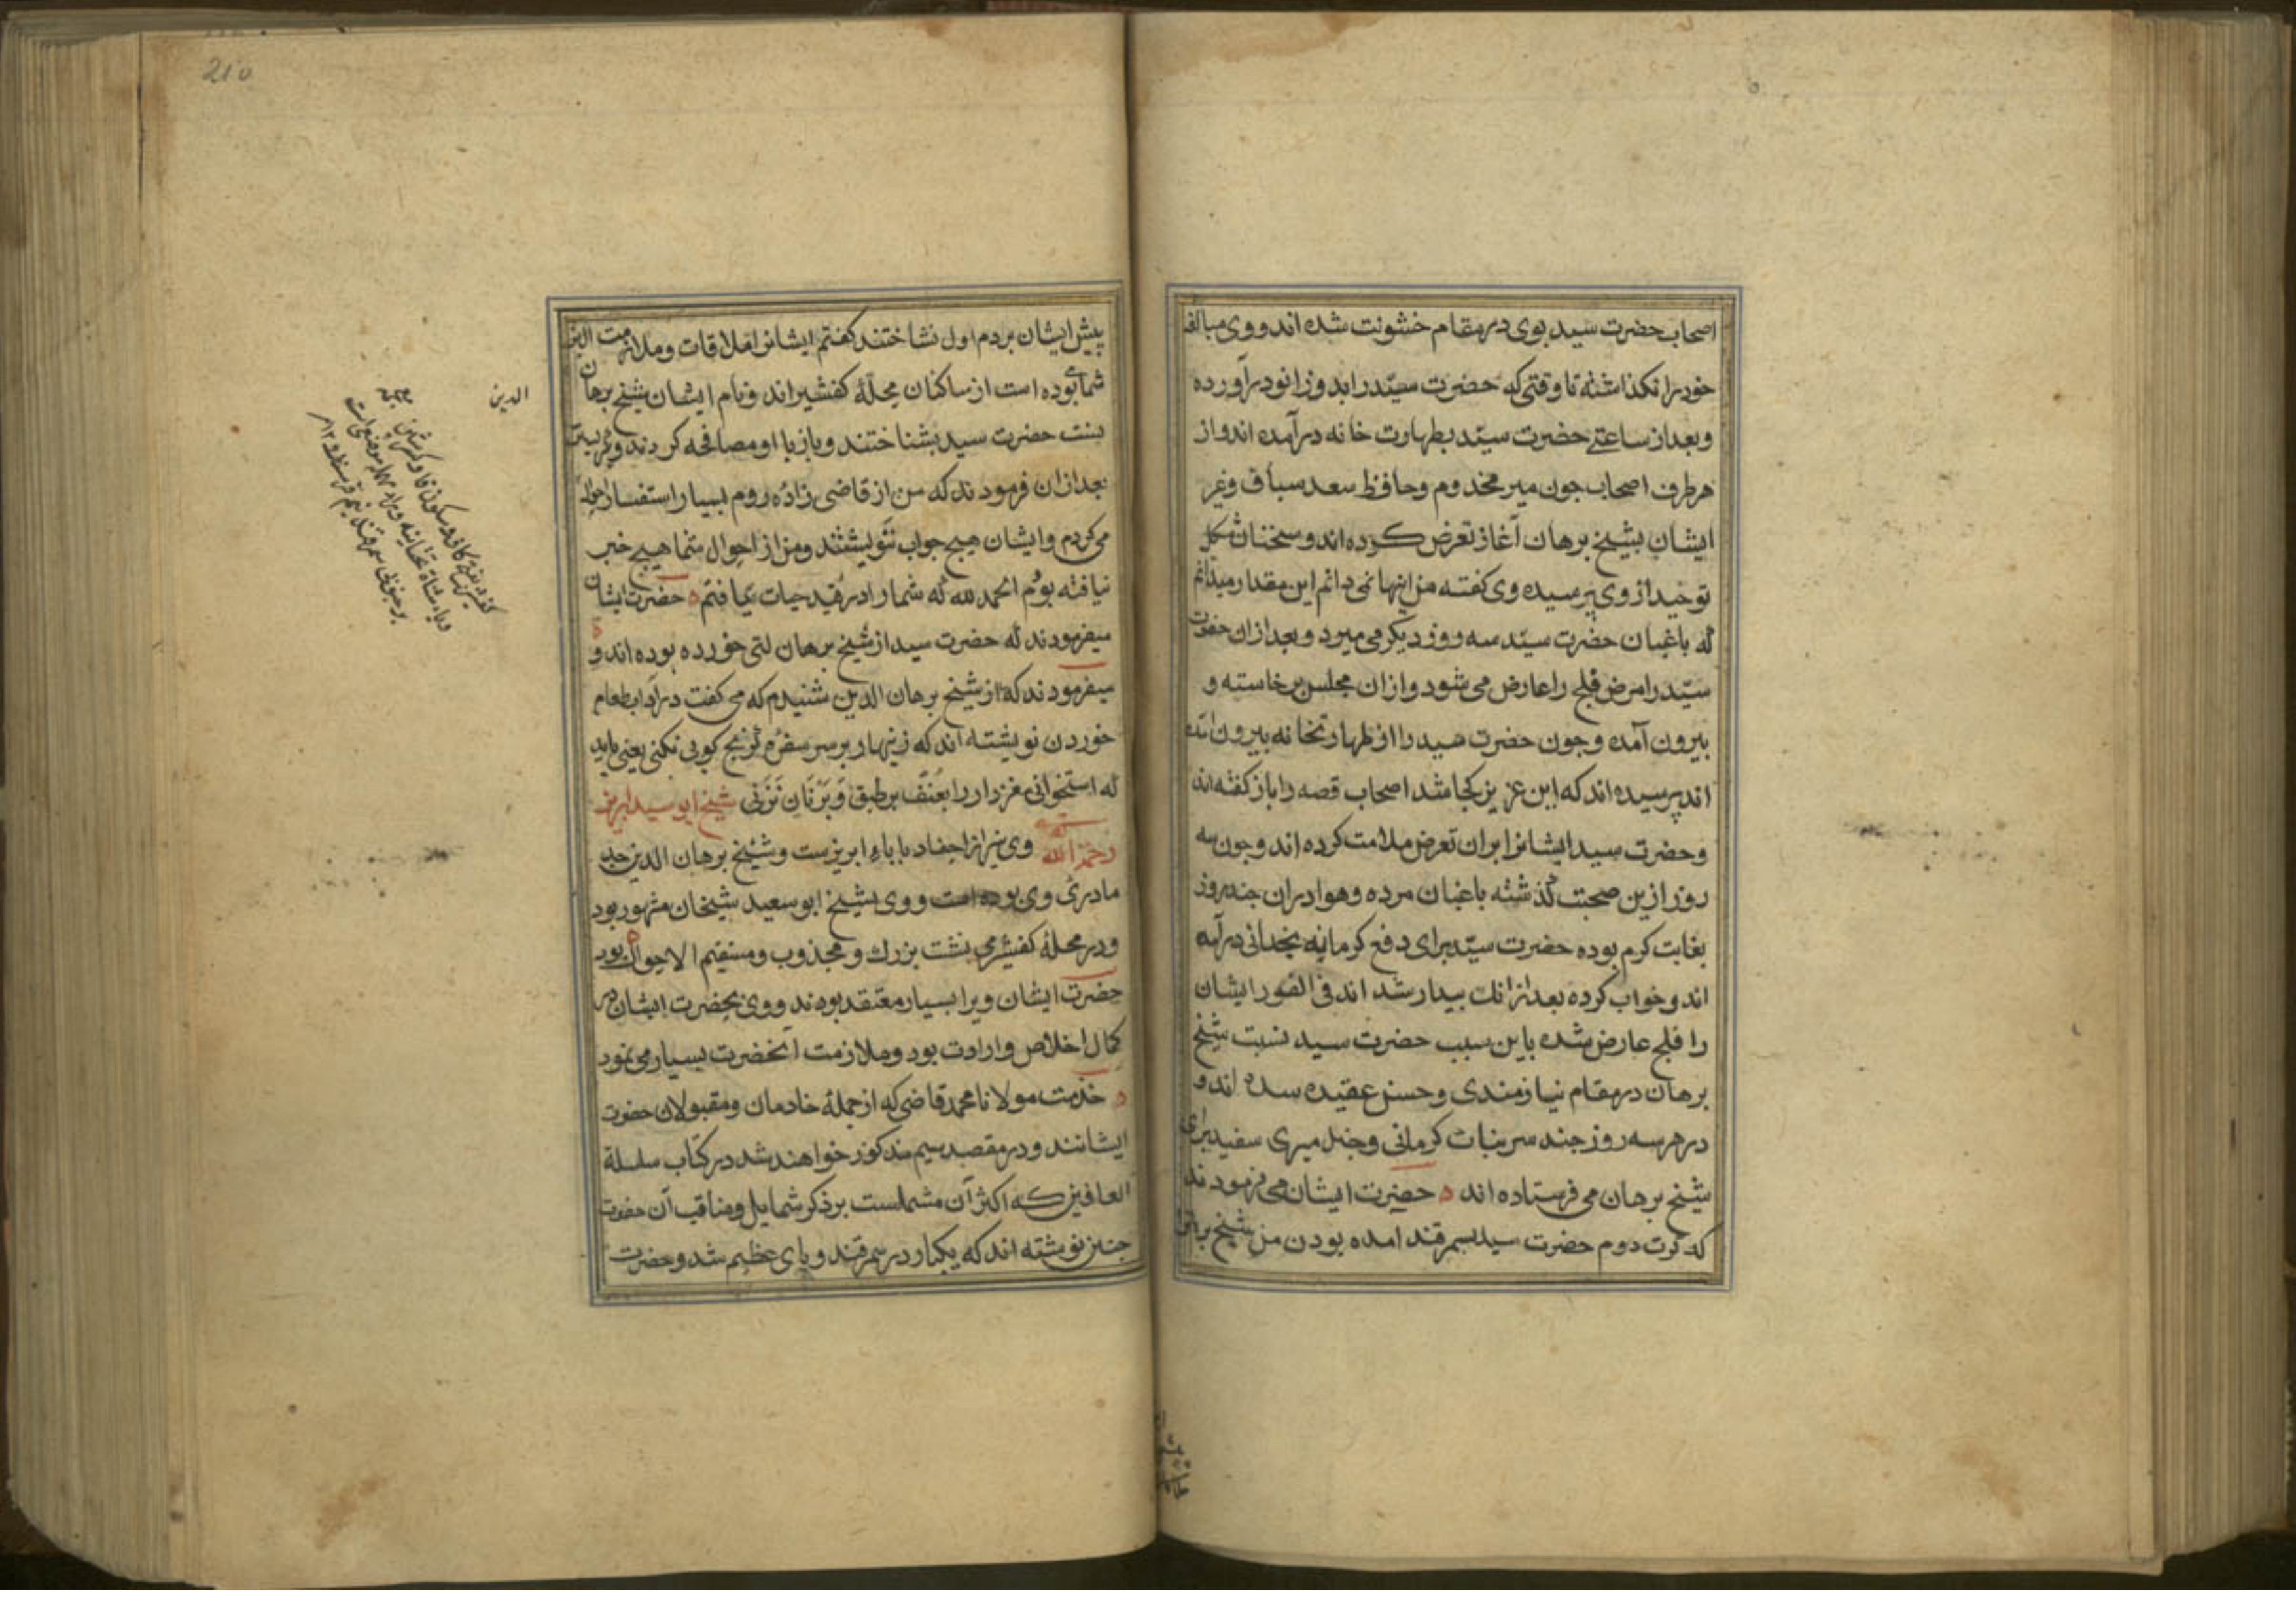 اصحاب حضرت سید بوی در مقام خشونت شده اند و وی مبالغه
خود را نکذاشته تا وقتی که حضرت سیّد را بدو زانو در آورده
و بعد از ساعتی حضرت سیّد بطهارت خانه در آمده اند و از
هر طرف اصحاب جون میر مخدوم و حافظ سعد سباق و غیر
ایشان بشیخ برهان آغاز تعرض کرده اند و سخنان مشکل
توحید از وی پرسیده وی کفته من اینها نمی دانم این مقدار میدانم
که باغبان حضرت سیّد سه روز دیکر می میرد و بعد از ان حضرت
سیّد را مرض فلج را عارض می شود و از ان مجلس برخاسته و
بیرون آمده و جون حضرت سید را از طهارتخانه بیرون آمده
اند پرسیده اند که این عزیز کجا شد اصحاب قصه را باز کفته اند
و حضرت سید ایشانرا بران تعرض ملامت کرده اند و جون سه
روز ازین صحبت کذشته باغبان مرده و هوا دران جند روز
بغایت کرم بوده حضرت سیّد برای دفع کرما به یخدانی در آمده
اند و خواب کرده بعد ازانک بیدار شده اند فی الفور ایشان
را فلج عارض شده باین سبب حضرت سید نسبت شیخ
برهان در مقام نیازمندی و حسن عقیده شده اند و
در هر سه روز جند سر نبات کرمانی و جند میری سفید برای
شیخ برهان می فرستاده اند حضرت ایشان می فرمودند
که کرت دوم حضرت سید بسمرقند امده بودن من شیخ برهانرا
210
پیش ایشان بردم اول نشناختند کفتم ایشانرا ملاقات و ملازمت
شما بوده است از ساکنان محلّهٔ کفشیراند و نام ایشان شیخ برهان
الدین
حضرت سید بشناختند و باز با او مصافحه کردند و پرسیدن
بعد ازان فرمودند که من از قاضی زادهٔ روم بسیار استفسار احوال
می کردم و ایشان هیج جواب ننویشتند و من از احوال شما هیج خبر
نیافته بودم الحمد لله که شما را در قید حیات یافتم حضرت ایشان
میفرمودند که حضرت سید از شیخ برهان لتی خورده بوده اند و
میفرمودند که از شیخ برهان الدین شنیدم که می کفت در آداب طعام
خوردن نویشته اند که زینهار بر سر سفره کرنج کوبی نکنی یعنی باید
که استخوانی مغزدار را بعنف بر طبق و بر نان نزنی شیخ ابو سعید ابریز
رحمه الله وی نیز از احفاد باباء ابریزست و شیخ برهان الدین جد
مادرئ وی بوده است و وی بشیخ ابو سعید شیخان مشهور بود
و در محلهٔ کفشیر می نشت بزرك و مجذوب و مستقیم الاحوال بود
حضرت ایشان ویرا بسیار معتقد بودند و وی بحضرت ایشان در
کمال اخلاص و ارادت بود و ملازمت آنحضرت بسیار می نمود
خذمت مولانا محمد قاضی که از جملهٔ خادمان و مقبولان حضرت
ایشانند و در مقصد سیم مذکور خواهند شد در کتاب سلسلة
العارفین که اکثر آن مشتملست بر ذکر شمایل و مناقب آن حضرت
جنین نوشته اند که یکبار در سمرقند وبای عظیم شد و حضرت